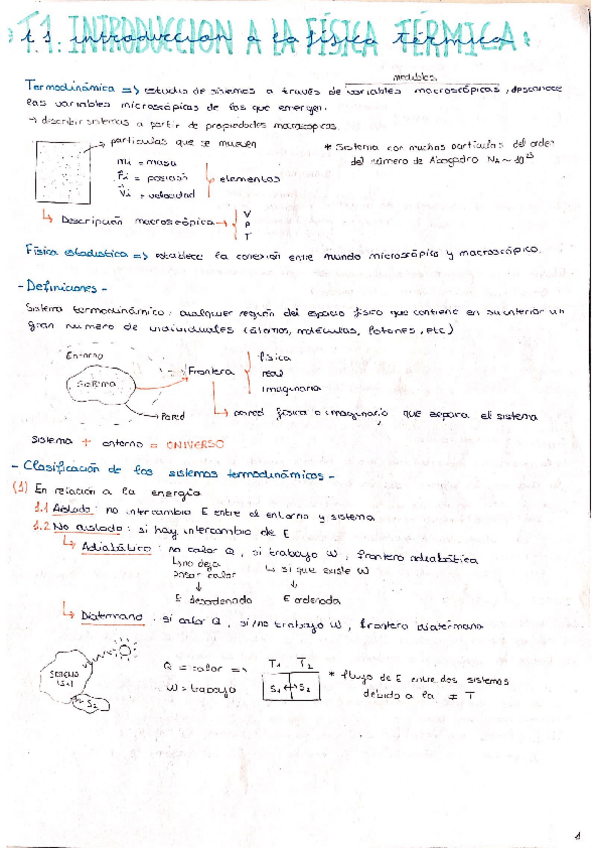 T.1. INTRODUCCION A LA FÍSICA TÉRMICA
t.1. introduccion a la física térmica:
medibles.
Termodinámica => estudio de sistemas a través de variables macroscópicas, desconoce
las variables microscópicas de los que emergen.
→ describir sistemas a partir de propiedades macroscópicas.
particulas que se mueven
mi = masa
ri = posición
vi = velocidad
elementos
* Sistema con muchas particulas del orden
del número de Avogadro NA ~ 10²³
Descripción macroscópica →
V
P
T
Física estadística => establece la conexión entre mundo microscópico y macroscópico.
- Definiciones -
Sistema termodinámico: cualquier región del espacio físico que contiene en su interior un
gran numero de individuales (átomos, moléculas, fotones, etc)
Entorno
Sistema
Frontera
física
real
imaginaria
Pared
pared física o imaginario que separa el sistema
Sistema + entorno = UNIVERSO
- Clasificación de los sistemas termodinámicos -
(1) En relación a la energía
1.1 Aislado: no intercambio E entre el entorno y sistema
1.2 No aislado: si hay intercambio de E
Adiabático: no calor Q, si trabajo W, frontera adiabática
no deja
pasar calor
si que existe W
E desordenada
E ordenada
Diatermano: si calor Q, si/no trabajo W, frontera diatermana
S2
Q = calor =>
W = trabajo
T1 T2
S1 ↔ S2
* flujo de E entre dos sistemas
debido a la ≠ T
1